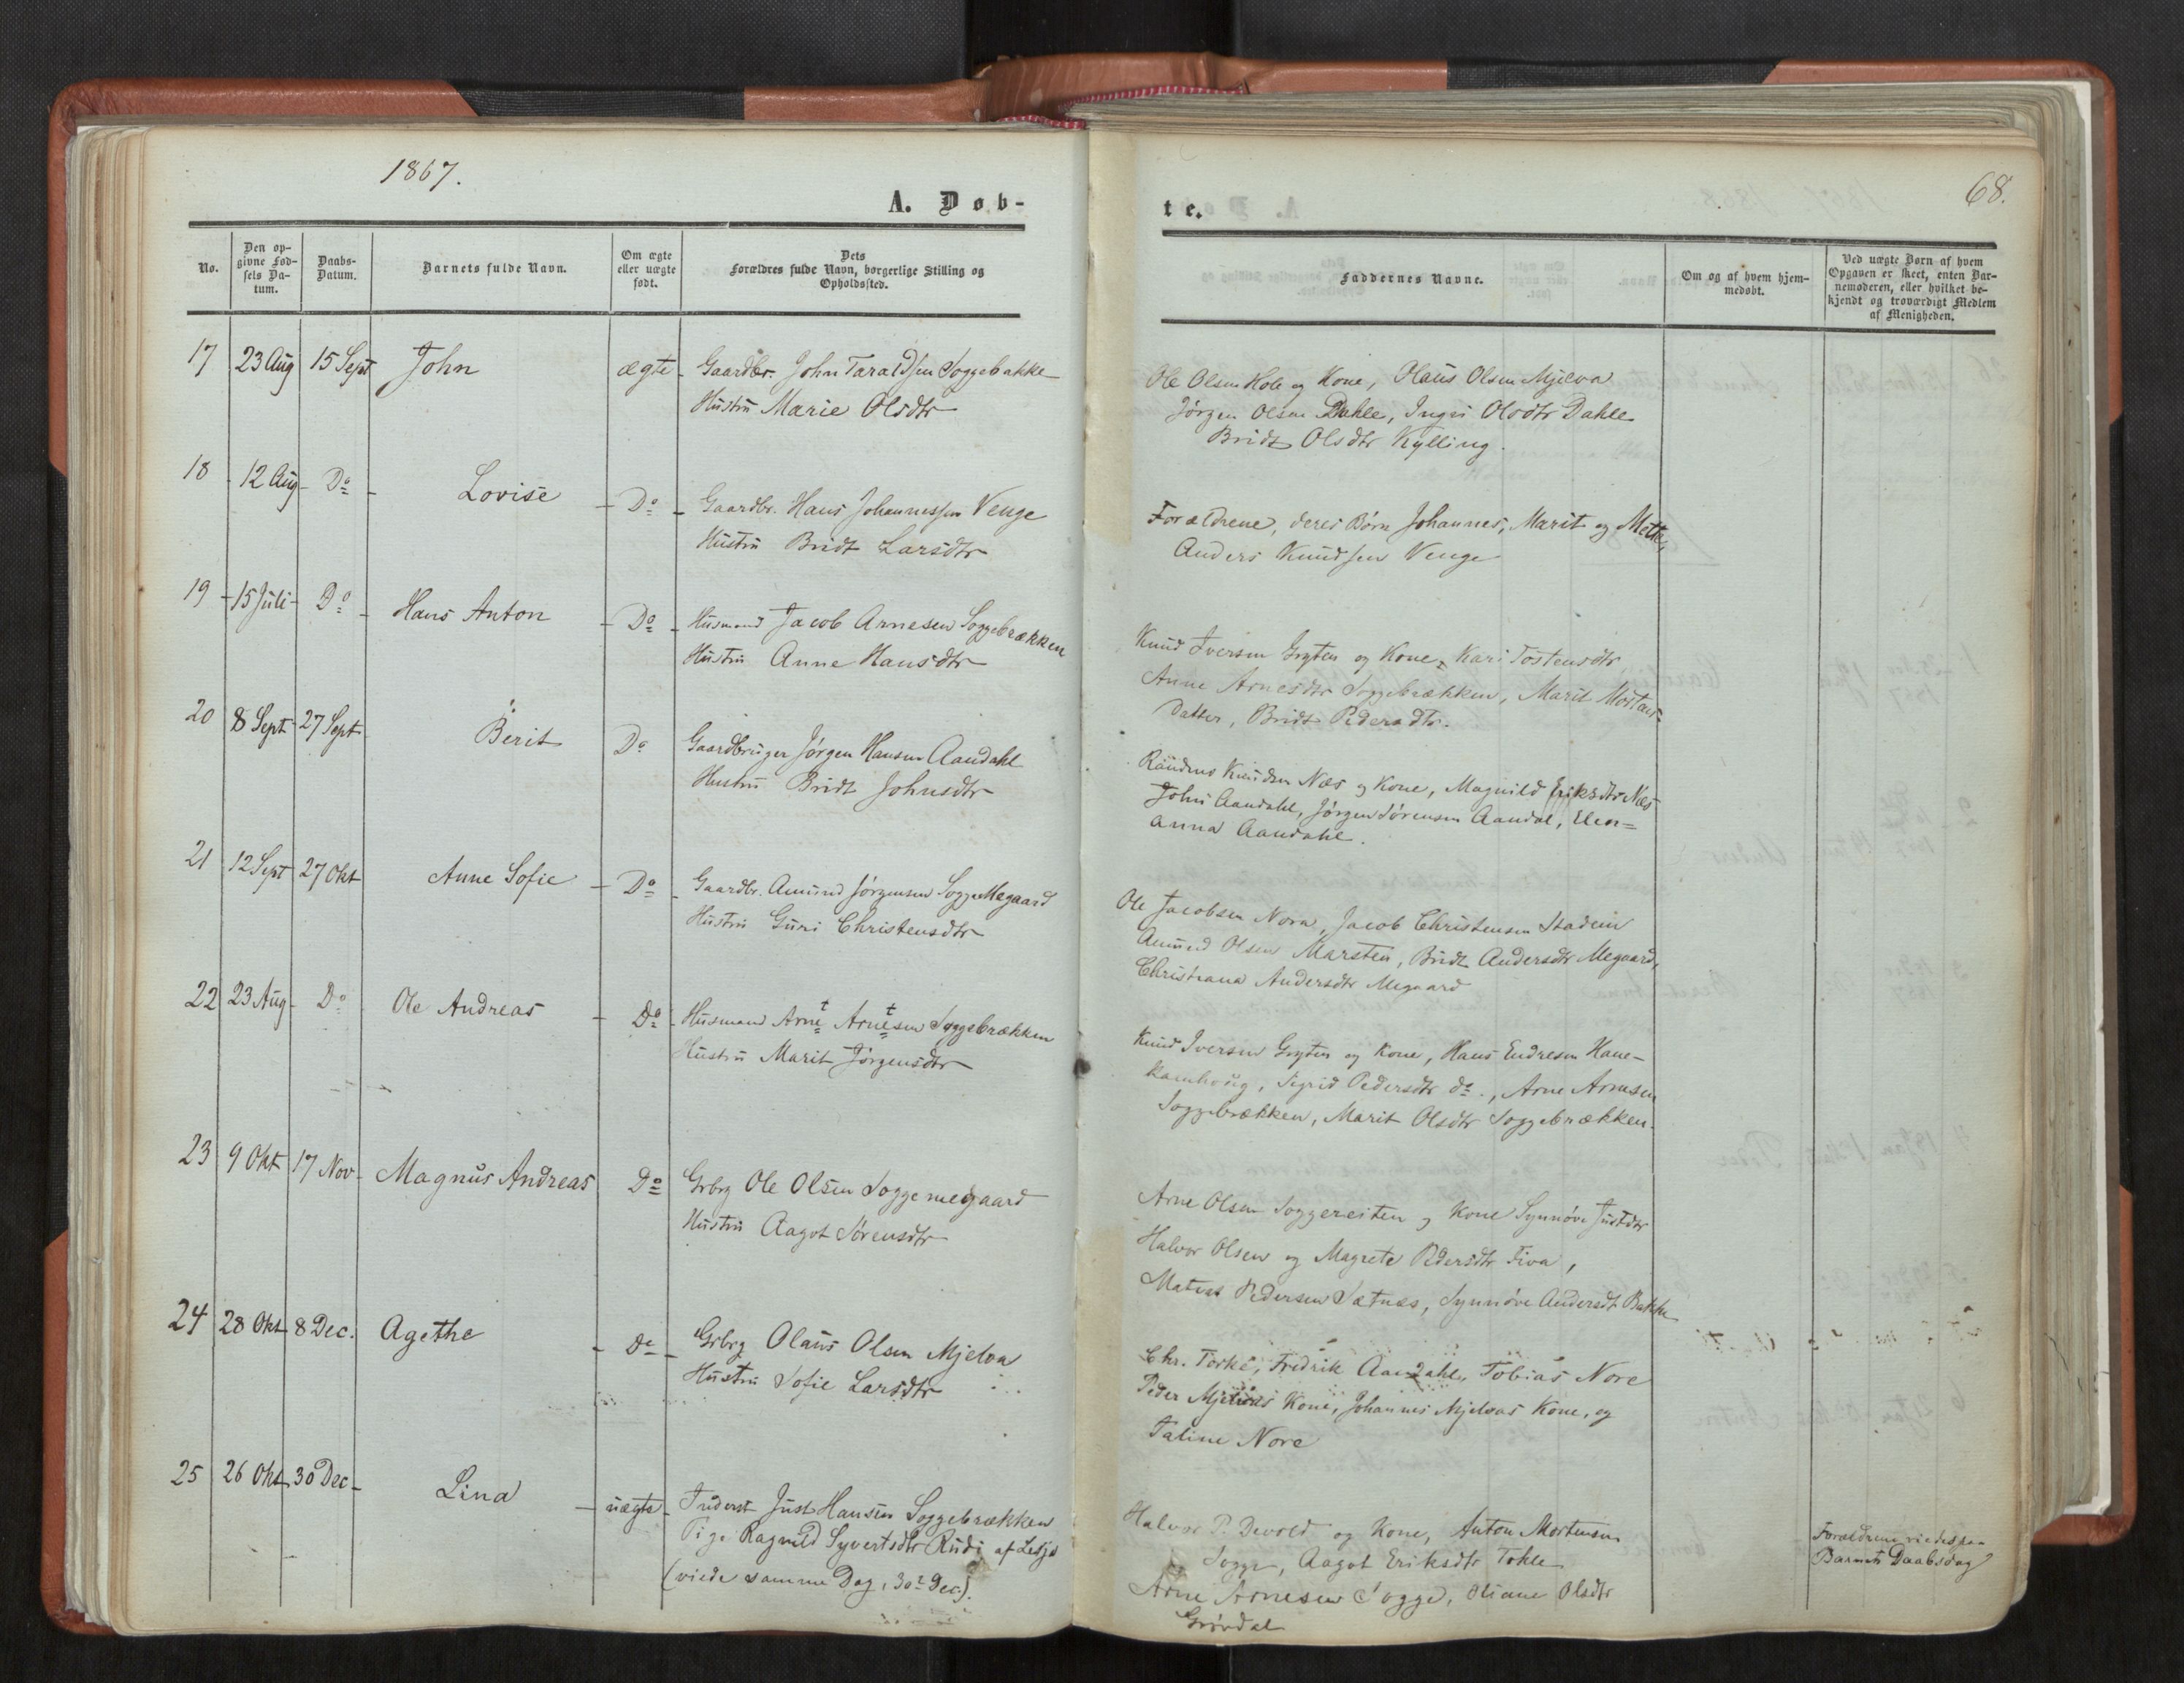 1867.
A. Døb-
No.
Den op-
givne Fød-
sels Da-
tum.
Daabs-
Datum.
Barnets fulde Navn.
Om ægte
eller uægte
født.
Dets
Forældres fulde Navn, borgerlige Stilling og
Opholdssted.
17 23 Aug 15 Sept John ægte Gaardbr. John Taraldsen Soggebakke
Hustru Marie Olsdtr
18 12 Aug Do Lovise Do Gaardbr. Hans Johannessen Venge
Hustru Bridt Larsdtr
19 15 Juli Do Hans Anton Do Husmand Jacob Arnesen Soggebrækken
Hustru Anne Hansdtr
20 8 Sept 27 Sept Berit Do Gaardbruger Jørgen Hansen Aandahl
Hustru Bridt Johnsdtr
21 12 Sept 27 Okt Anne Sofie Do Gaardbr. Amund Jørgensen Sogge Megaard
Hustru Guri Christensdtr
22 23 Aug Do Ole Andreas Do Husmand Arnt Arntsen Soggebrækken
Hustru Marit Jørgensdtr
23 9 Okt 17 Nov Magnus Andreas Do Grbrg Ole Olsen Soggemegaard
Hustru Aagot Sørensdtr
24 28 Okt 8 Dec. Agethe Do Grbrg Olaus Olsen Mjelva
Hustru Sofie Larsdtr
25 26 Okt 30 Dec Lina uægte Inderst Just Hansen Soggebrækken
Pige Ragnild Syvertsdtr Rudi af Lesje
(viede samme Dag, 30 Dec).
68.
te.
Faddernes Navne.
Om og af hvem hjem-
medøbt.
Ved uægte Børn af hvem
Opgaven er skeet, enten Bar-
nemoderen, eller hvilket be-
kjendt og troværdigt Medlem
af Menigheden.
Ole Olsen Hole og Kone, Olaus Olsen Mjelva
Jørgen Olsen Dahle, Ingri Olsdtr Dahle
Bridt Olsdtr Kylling.
Forældrene, deres Børn Johannes, Marit og Mette,
Anders Knudsen Venge
Knud Iversen Gryten og Kone, Kari Tostensdtr
Anne Arnesdtr Soggebrækken, Marit Mortens-
datter, Bridt Pedersdtr.
Knudsen Næs og Kone, Magnild Eriksdtr Næs
John Aandahl, Jørgen Sørensen Aandal, Elen=
anna Aandahl.
Ole Jacobsen Nora, Jacob Christensen Stadem
Amund Olsen Marsten, Bridt Andersdtr Megaard,
Christiana Andersdtr Megaard
Knud Iversen Gryten og Kone, Hans Endresen Hane-
kamhoug, Sigrid Pedersdtr do., Arne Arnesen
Soggebrækken, Marit Olsdtr Soggebrækken.
Arne Olsen Soggereiten og Kone Synnøve Justdtr
Halvor Olsen og Magrete Pedersdtr Fiva,
Matias Pedersen Sætnes, Synnøve Andersdt Bakke
Chr. Torke, Fredrik Aandahl, Tobias Nore
Peder Mjelvas Kone, Johannes Mjelvas Kone, og
Taline Nore
Halvor P. Devold og Kone, Anton Mortensen
Sogge, Aagot Eriksdtr Tokle
Arne Arnesen Sogge, Oliane Olsdtr
Grøvdal
Forældrene viedes paa
Barnets Daabsdag